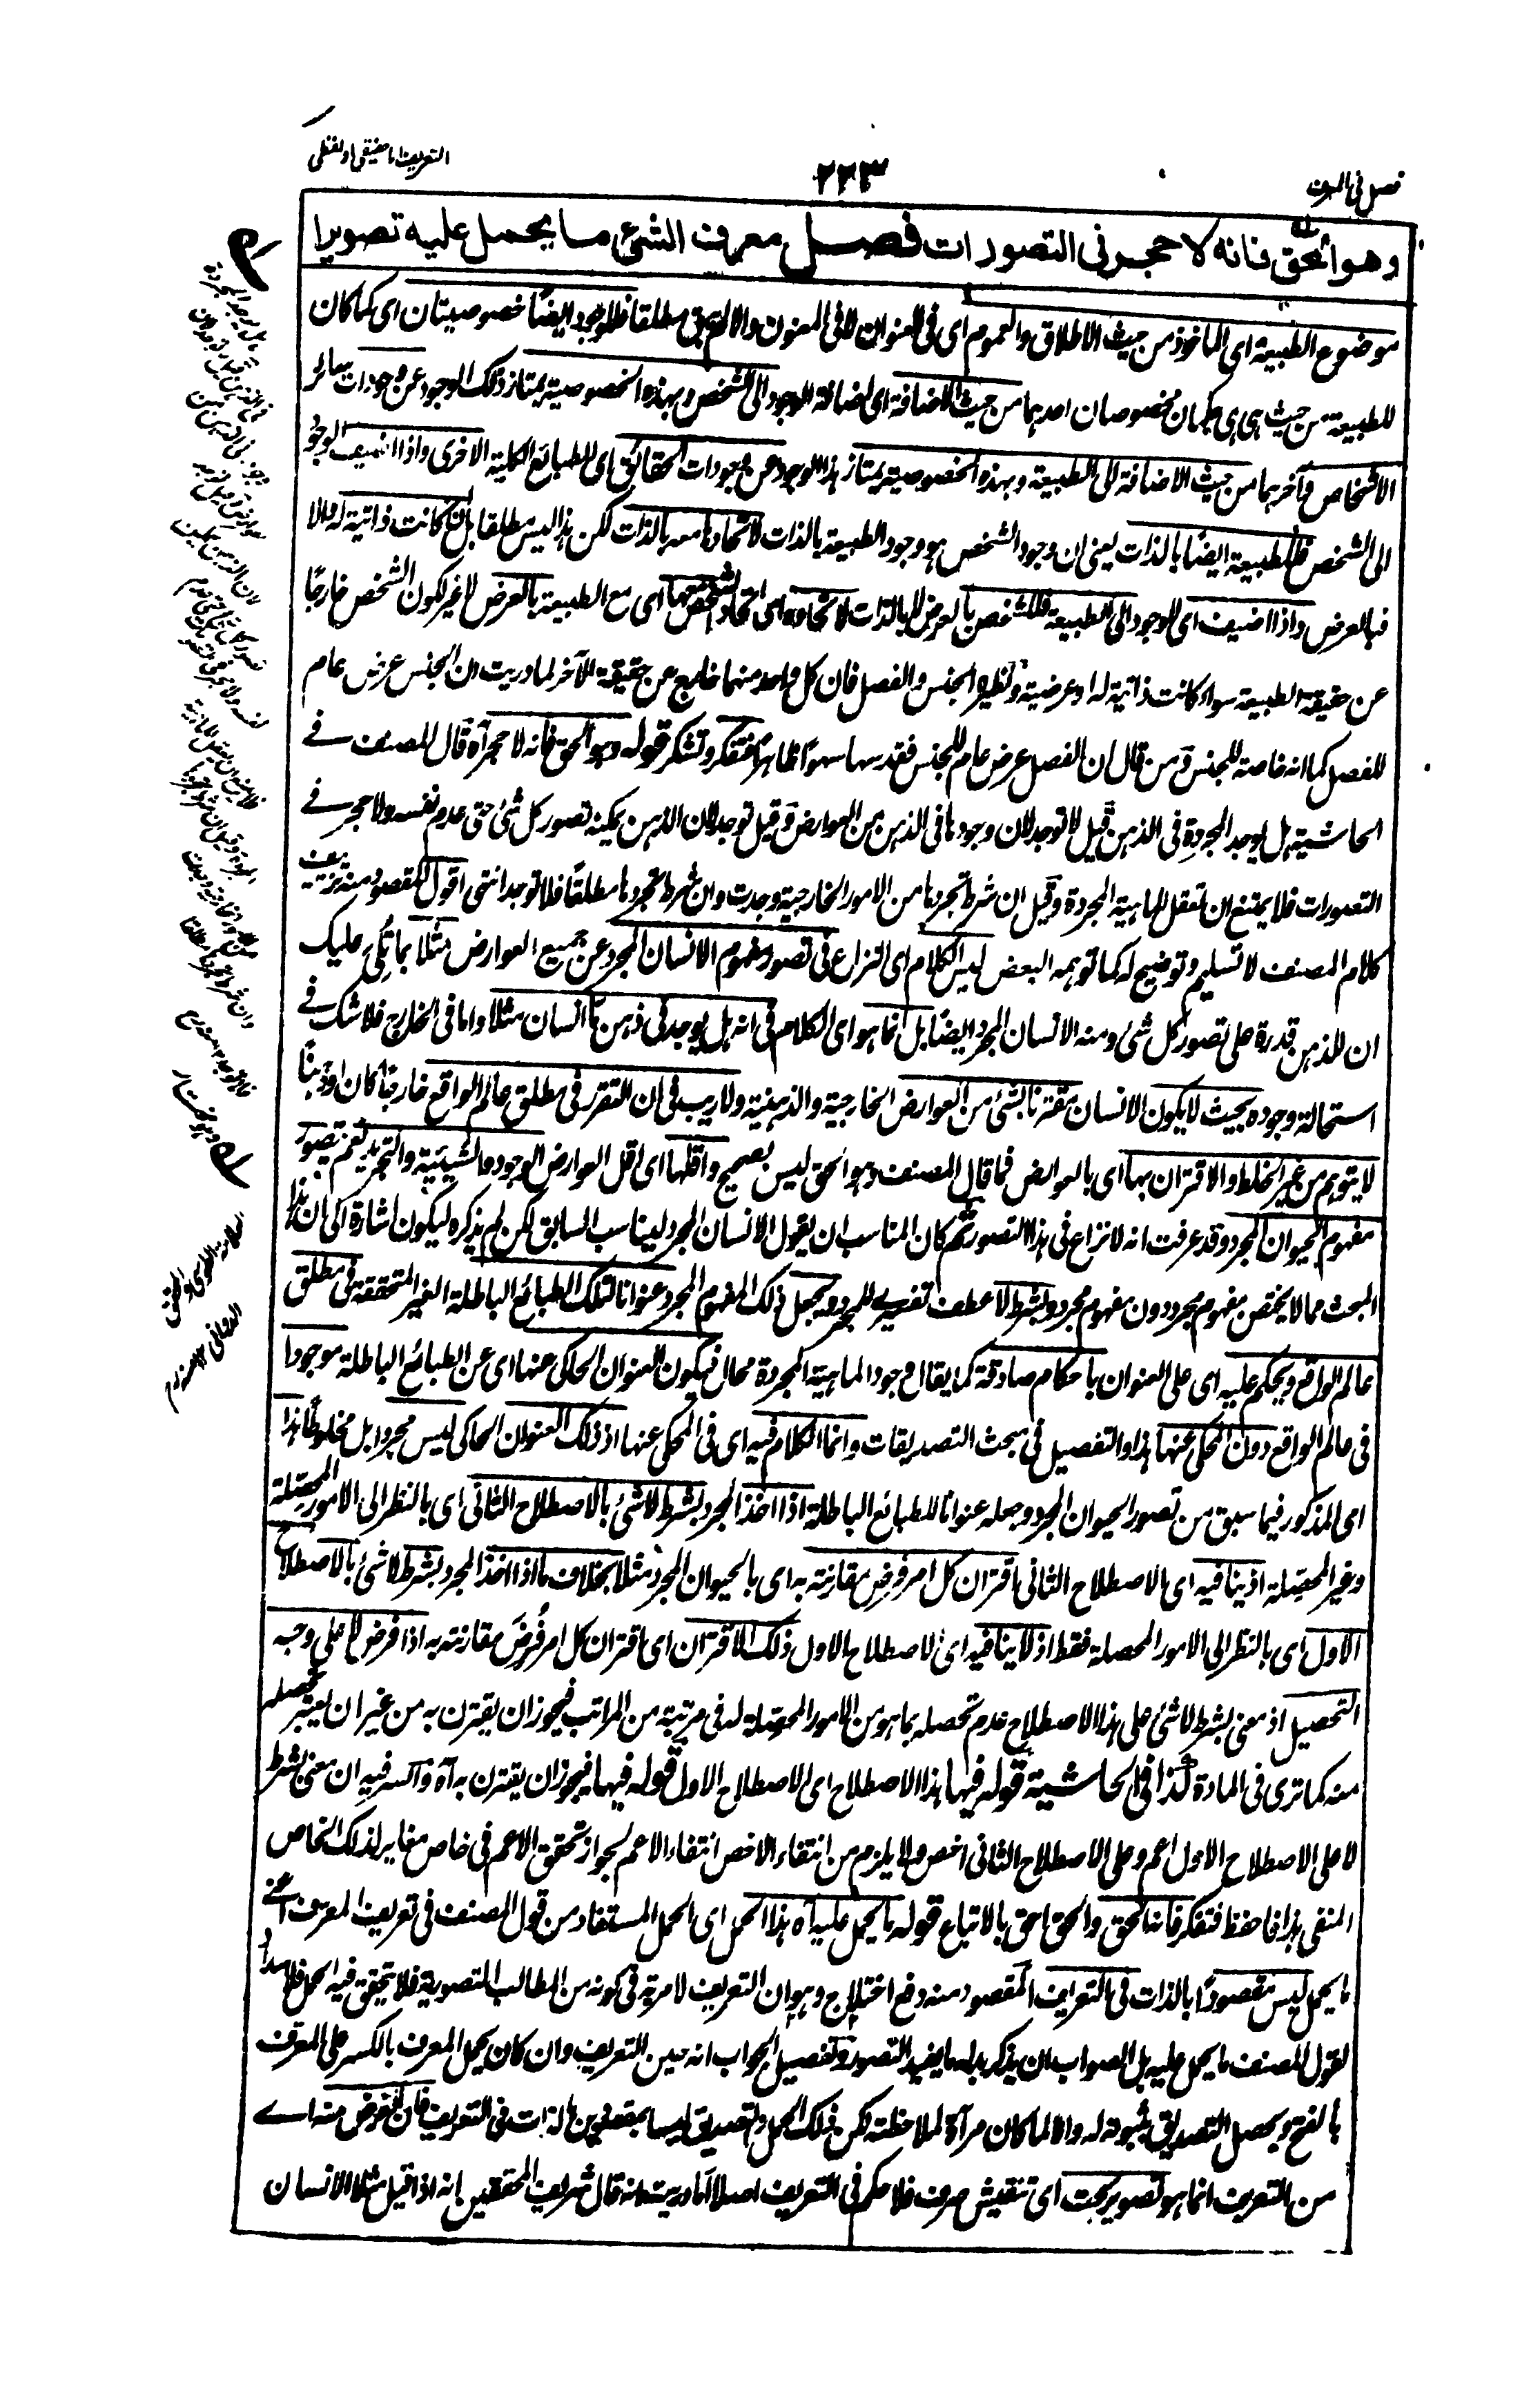 فصل فی المعرف
۲۲۳
التعریف اما حقیقی او لفظی
وهو الحق فانه لا حجر فی التصورات فصل معرف الشئ ما یحمل علیه تصویرا
موضوع الطبیعة ای الماخوذ من حیث الاطلاق والعموم ای فی العنوان لا فی المعنون والا لم یبق مطلقا فللوجود ایضًا خصوصیتان ای کما کان
للطبیعة من حیث هی هی حکمان مخصوصان احدهما من حیث الاضافة ای اضافة الوجود الی الشخص وبهذه الخصوصیة یمتاز ذلک الوجود عن وجودات سائر
الاشخاص وآخرهما من حیث الاضافة الی الطبیعة وبهذه الخصوصیة یمتاز هذا الوجود عن وجودات الحقائق ای الطبائع الکلیة الاخری واذا اضیف الوجود
الی الشخص فللطبیعة ایضًا بالذات یعنی ان وجود الشخص هو وجود الطبیعة بالذات لاتحادها معه بالذات لکن هذا لیس مطلقا بل ان کانت ذاتیة له والا
فبالعرض واذا اضیف ای الوجود الی الطبیعة فللشخص بالعرض لا بالذات لاتحاده ای اتحاد الشخص معها ای مع الطبیعة بالعرض لا غیر لکون الشخص خارجًا
عن حقیقة الطبیعة سواء کانت ذاتیة له او عرضیة ونظیره الجنس والفصل فان کل واحد منهما خارج عن حقیقة الآخر لما دریت ان الجنس عرض عام
للفصل کما انه خاصة للجنس ومن قال ان الفصل عرض عام للجنس فقد سها سهوًا ظاهرًا فتفکر وتشکر قوله وهو الحق فانه لا حجر آه قال المصنف فے
الحاشیة هل یوجد المجردة فی الذهن قیل لا توجد لان وجودها فی الذهن من العوارض وقیل توجد لان الذهن یمکنه تصور کل شئ حتی عدم نفسه ولا حجر فے
التصورات فلا یمتنع ان تعقل الماهیة المجردة وقیل ان شرط تجردها من الامور الخارجیة وجدت وان شرط تجردها مطلقًا فلا توجد انتهی اقول المقصود منه تزییف
کلام المصنف لا تسلیم وتوضیح له کما توهمه البعض لیس الکلام ای النزاع فی تصور مفهوم الانسان المجرد عن جمیع العوارض مثلًا بما تلی علیک
ان للذهن قدرة علی تصور کل شئ ومنه الانسان المجرد ایضًا بل انما هو ای الکلام فی انه هل یوجد فی ذهن ما انسان مثلا واما فی الخارج فلا شک فے
استحالة وجوده بحیث لا یکون الانسان مقترنا بشئ من العوارض الخارجیة والذهنیة ولا ریب فی ان التقرر فی مطلق عالم الواقع خارجًا کان او ذهنًا
لا یتوهم من غیر الخلط والاقتران بها ای بالعوارض فما قال المصنف وهو الحق لیس بصحیح واقلها ای اقل العوارض الوجود والشیئیة والتجرید نعم تصور
مفهوم الحیوان المجرد وقد عرفت انه لا نزاع فی هذا التصور ثم کان المناسب ان یقول الانسان المجرد لیناسب السابق لکن لم یذکره لیکون اشارة الی ان هذا
البحث مما لا یختص بمفهوم مجرد دون مفهوم مجرد وبشرط لا عطف تفسیرے للمجرد ویجعل ذلک المفهوم المجرد عنوانا لتلک الطبائع الباطلة الغیر المتحققة فی مطلق
عالم الواقع ویحکم علیه ای علی العنوان باحکام صادقة کما یقال وجود الماهیة المجردة محال فیکون العنوان الحاکی عنها ای عن الطبائع الباطلة موجودا
فی عالم الواقع دون المحکی عنها هذا والتفصیل فی مبحث التصدیقات وانما الکلام فیه ای فی المحکی عنها اذ ذلک العنوان الحاکی لیس مجردا بل مخلوطًا هذا
ای المذکور فیما سبق من تصور الحیوان المجرد وجعله عنوانا للطبائع الباطلة اذا اخذ المجرد بشرط لا شئ بالاصطلاح الثانی ای بالنظر الی الامور المحصلة
وغیر المحصلة اذ ینافیه ای الاصطلاح الثانی اقتران کل امر فرض مقارنته به ای بالحیوان المجرد مثلا بخلاف ما اذا اخذ المجرد بشرط لا شئ بالاصطلاح
الاول ای بالنظر الی الامور المحصلة فقط اذ لا ینافیه ای الاصطلاح الاول ذلک الاقتران ای اقتران کل امر فُرضَ مقارنته به اذا فرض لا علی وجه
التحصیل اذ معنی بشرط لا شئ علی هذا الاصطلاح عدم تحصله بما هو من الامور المحصلة له فی مرتبة من المراتب فیجوز ان یقترن به من غیر ان یعتبر تحصله
منه کما تری فی المادة کذا فی الحاشیة قوله فیها هذا الاصطلاح ای الاصطلاح الاول قوله فیها فیجوز ان یقترن به آه والسر فیه ان معنی بشرط
لا علی الاصطلاح الاول اعم وعلی الاصطلاح الثانی اخص ولا یلزم من انتفاء الاخص انتفاء الاعم لجواز تحقق الاعم فی خاص مغایر لذلک الخاص
المنفی هذا فاحفظ فتفکر فانه الحق والحق احق بالاتباع قوله ما یحمل علیه آه هذا الحمل ای الحمل المستفاد من قول المصنف فی تعریف المعرف اعنے
ما یحمل لیس مقصودًا بالذات فی التعریف المقصود منه دفع اختلاج وهو ان التعریف لا مریة فی کونه من المطالب التصوریة فلا یتحقق فیه الحمل فلا
لقول المصنف ما یحمل علیه بل الصواب ان یذکر بدله ما یفید التصور وتفصیل الجواب انه حین التعریف وان کان یحمل المعرف بالکسر علی المعرف
بالفتح ویحصل التصدیق بثبوته له والا لما کان مرآة لملاحظته لکن ذلک الحمل والتصدیق لیسا بمقصودین بالذات فی التعریف فان الغرض منه اے
من التعریف انما هو تصویر بحت ای تنقیش صرف فلا حکم فی التعریف اصلا اما دریت انه قال شریف المحققین انه اذا قیل مثلا الانسان